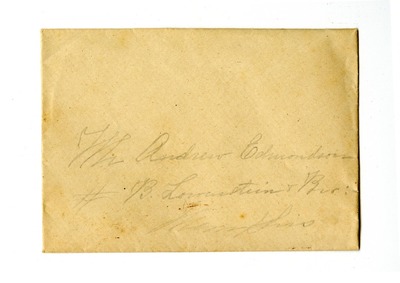 Mr Andrew Edmondson
# B. Lowenstein & Bro:
Memphis